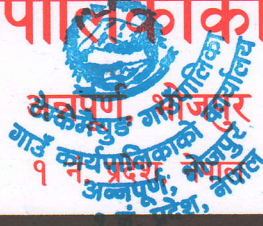 पालिकाको
अन्नपूर्ण, भोजपुर
१ नं. प्रदेश, नेपाल
टेम्केमैयुङ गाउँपालिका
गाउँ कार्यपालिकाको कार्यालय
अन्नपूर्ण, भोजपुर
१ नं. प्रदेश, नेपाल